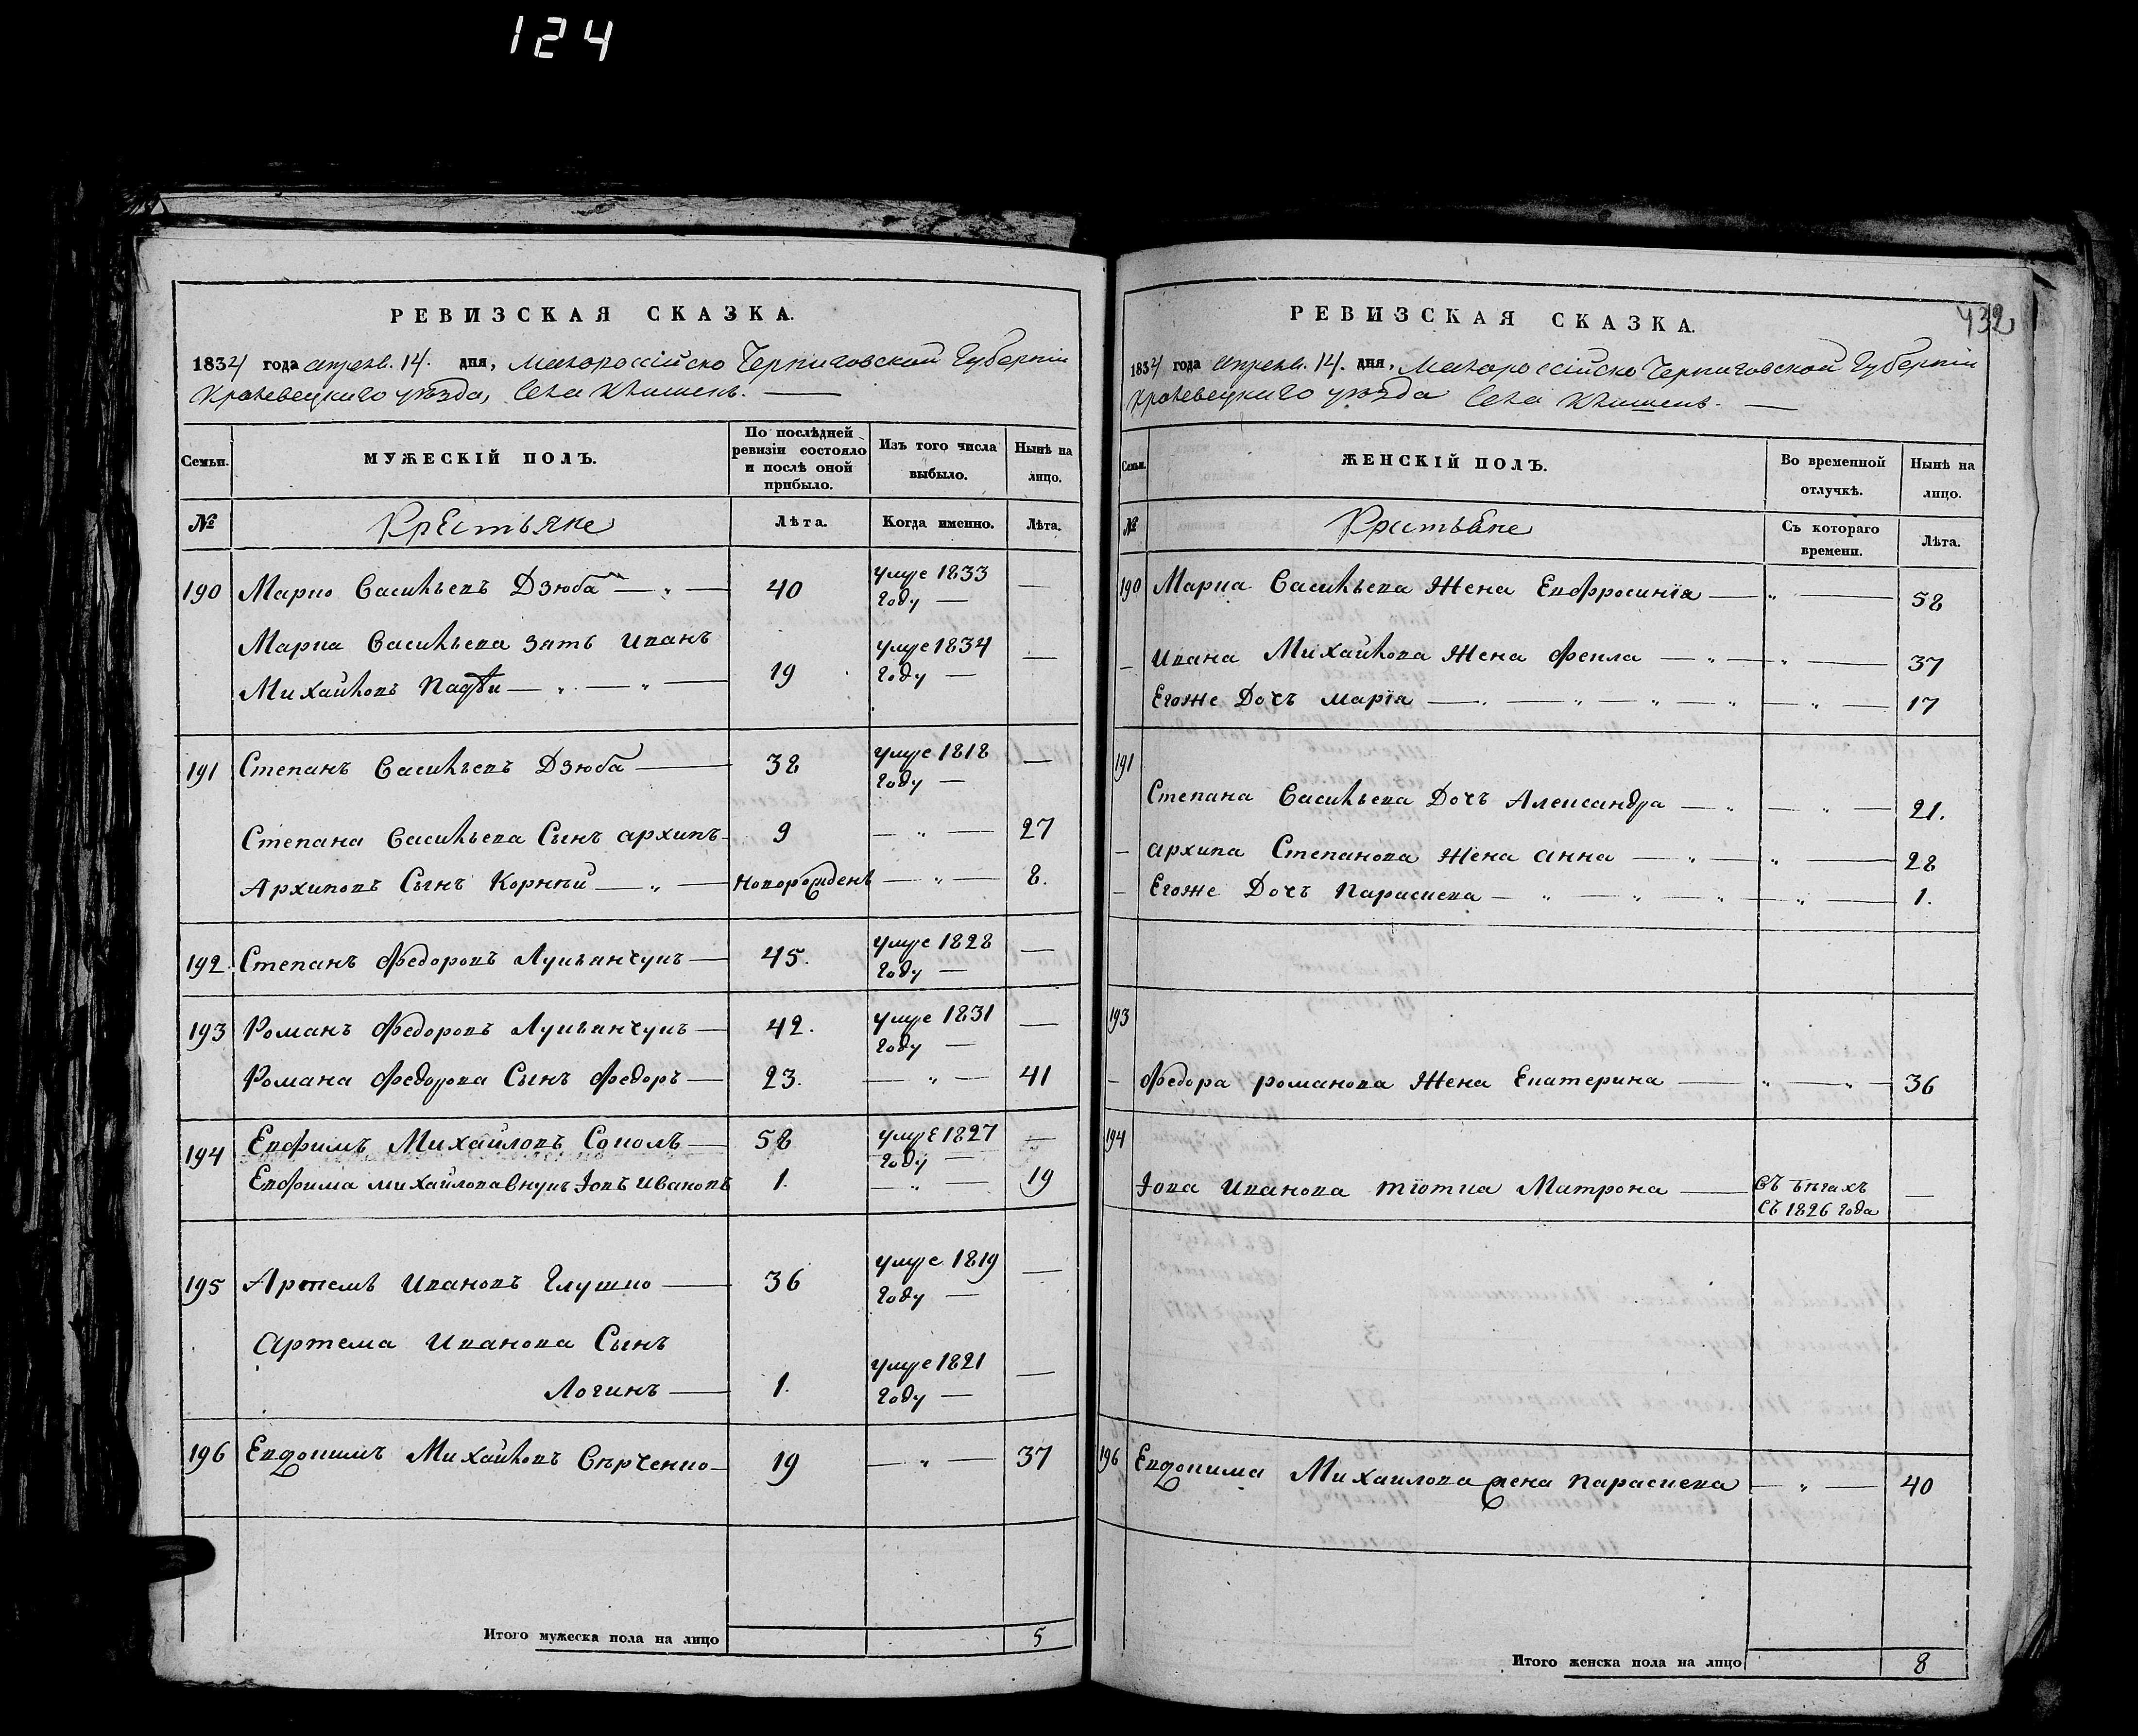 124
РЕВИЗСКАЯ СКАЗКА.
1834 года апреля. 14. дня, Малороссійско Черниговской Губерніи
Кролевецкаго уѣзда, Села Клишекъ.
Семьи. МУЖЕСКІЙ ПОЛЪ. По послѣдней ревизіи состояло и послѣ оной прибыло. Изъ того числа выбыло. Нынѣ на лицо.
№ Крестьяне Лѣта. Когда именно. Лѣта.
190 Марко Васильевъ Дзюба — „ — 40 умре 1833 году — —
Марка Васильева зять Иванъ
Михайловъ — „ — „ — 19 умре 1834 году — —
191 Степанъ Васильевъ Дзюба — 38 умре 1818 году — —
Степана Васильева Сынъ архипъ 9 — „ — 27
Архиповъ Сынъ Корнѣй — „ — новорожденъ — „ — 8.
192. Степанъ Федоровъ Лукьянчукъ — 45. умре 1828 году — —
193 Романъ Федоровъ Лукьянчукъ — 42. умре 1831 году — —
Романа Федорова Сынъ Федоръ — 23. — „ — 41
194 Евфимъ Михайловъ Соколъ — 58 умре 1827 году — —
Евфима михайлова внукъ Іовъ Ивановъ 1. — „ — 19
195 Артемъ Ивановъ Глушко — 36 умре 1819 году — —
Артема Иванова Сынъ
Логинъ — 1. умре 1821 году — —
196 Евдокимъ Михайловъ Сѣрченко — 19 — „ — 37
Итого мужеска пола на лицо 5
432
РЕВИЗСКАЯ СКАЗКА.
1834 года апреля. 14. дня, Малороссійско Черниговской Губерніи
Кролевецкаго уѣзда Села Клишекъ. —
Семьи. ЖЕНСКІЙ ПОЛЪ. Во временной отлучкѣ. Нынѣ на лицо.
№ Крестьяне Съ котораго времени. Лѣта.
190 Марка Васильева Жена Евфросинія — „ — 58
— Ивана Михайлова Жена Фекла — „ — „ — 37
Егоже Дочъ марія — „ — „ — „ — „ — „ — 17
191
Степана Васильева Дочъ Александра — „ — „ — 21.
— архипа Степанова Жена анна — „ — „ — 28
— Егоже Дочъ Параскева — „ — „ — „ — „ — 1.
193
— Федора романова Жена Екатерина — „ — „ — 36
194
Іова Иванова тіотка Матрона — въ бѣгахъ съ 1826 года —
196 Евдокима Михайлова жена параскева — „ — 40
Итого женска пола на лицо 8